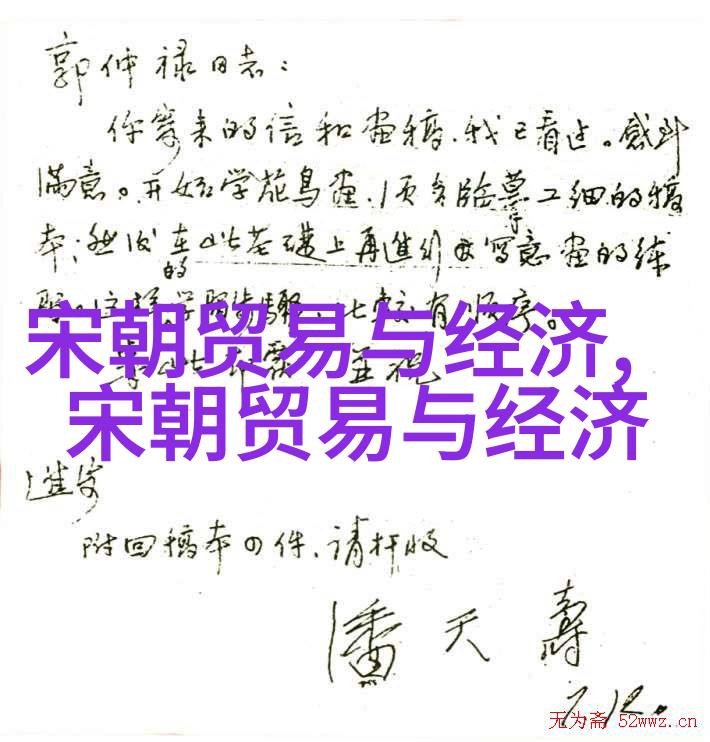 郭仲禄同志：
你寄来的信和画稿，我已看过。感到
满意。开始学花鸟画，须多临摹工细的稿
本；然后在此基础上再进行写意画的练
的
宋朝贸易与经济，
宋朝贸易与经济
附回稿本四件，请检收
潘天寿
7.12.
无为斋 52wwz.cn